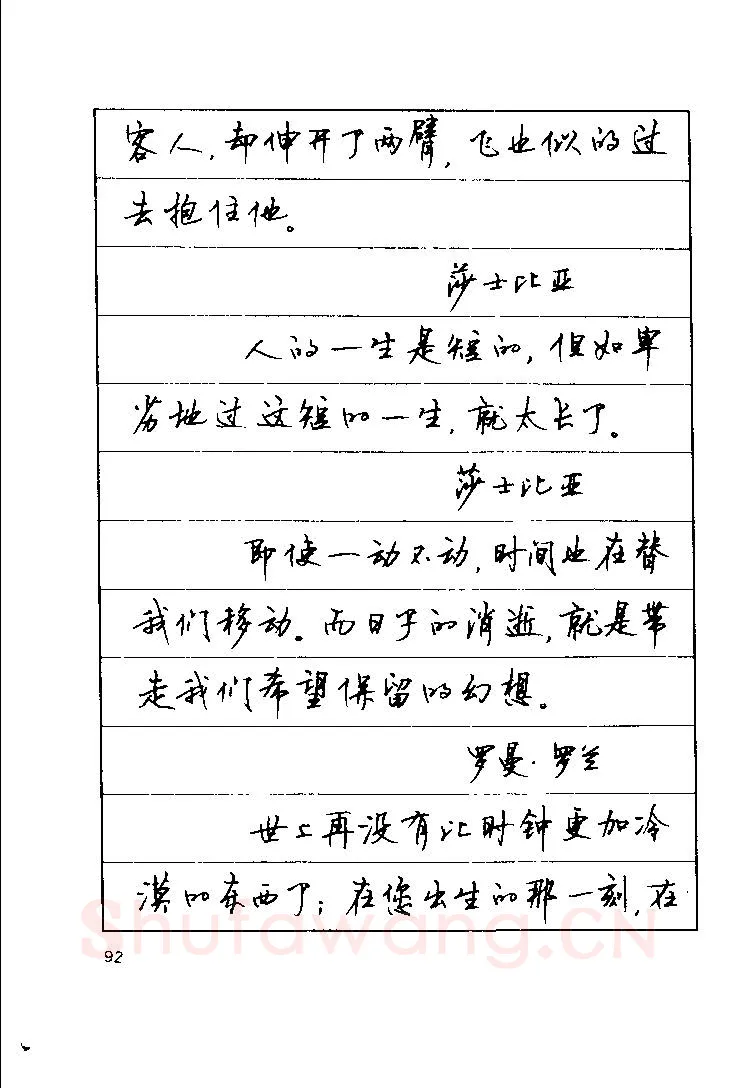 客人,却伸开了两臂,飞也似的过
去抱住他。
莎士比亚
人的一生是短的,但如卑
劣地过这短的一生,就太长了。
莎士比亚
即使一动不动,时间也在替
我们移动。而日子的消逝,就是带
走我们希望保留的幻想。
罗曼·罗兰
世上再没有比时钟更加冷
漠的东西了;在您出生的那一刻,在
Shufawang.CN
92